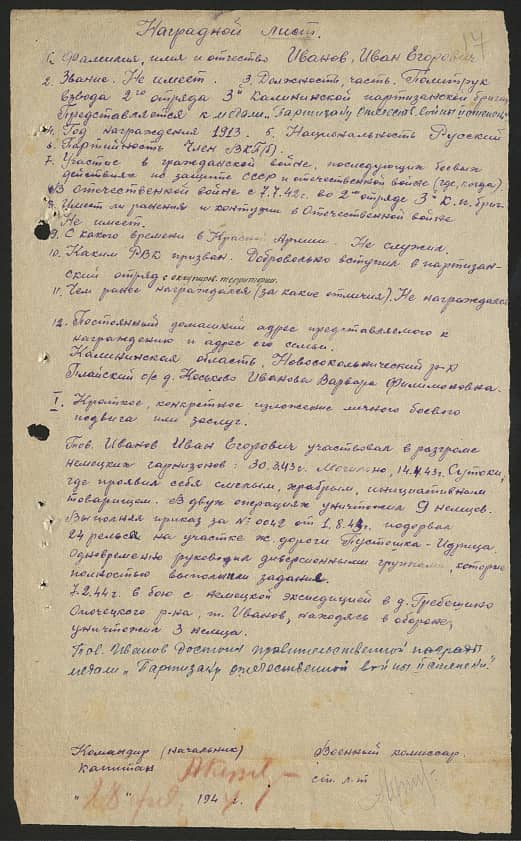 17
Наградной лист.
1. Фамилия, имя и отчество Иванов, Иван Егорович
2. Звание. Не имеет. 3. Должность, часть. Политрук
взвода 2го отряда 3й Калининской партизанской бриг.
Представляется к медали "Партизану Отечеств. войны II степени"
4. Год награждения 1913. 5. Национальность Русский
6. Партийность Член ВКП(б).
7. Участие в гражданской войне, последующих боевых
действиях по защите СССР и отечественной войне (где, когда).
В отечественной войне с 7.7.42г. во 2м отряде 3й К.п. бриг.
8. Имеет ли ранения и контузии в Отечественной войне
Не имеет.
9. С какого времени в Красной Армии. Не служил
10. Каким РВК призван. Добровольно вступил в партизан-
ский отряд с оккупион. территории.
11. Чем ранее награждался (за какие отличия). Не награждался
12. Постоянный домашний адрес представляемого к
награждению и адрес его семьи.
Калининская область, Новосокольнический р-н
с/с д. Иванова Варвара Филимоновна.
I. Краткое, конкретное изложение личного боевого
подвига или заслуг.
Тов. Иванов Иван Егорович участвовал в разгроме
немецких гарнизонов: 30.3.43г. 14.4.43г. Сутоки,
где проявил себя смелым, храбрым, инициативным
товарищем. В двух операциях уничтожил 9 немцев.
Выполняя приказ за № 0042 от 1.8.43г. подорвал
24 рельса на участке ж. дороги Пустошка-Идрица.
Одновременно руководил диверсионными группами, которые
полностью выполнили задания.
7.2.44г. в бою с немецкой экспедицией в д.
р-на, т. Иванов, находясь в обороне,
уничтожил 3 немца.
Тов. Иванов достоин правительственной награды
медали "Партизану отечественной войны II степени."
Командир (начальник) Военный комиссар.
капитан ст. л-т
" " 194 г.